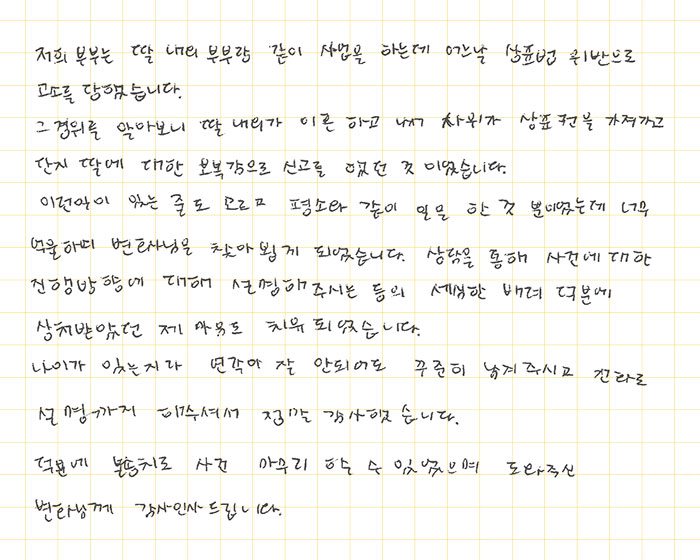 저희 부부는 딸 내외 부부랑 같이 사업을 하는데 어느날 상표법 위반으로
고소를 당했습니다.
그 경위를 알아보니 딸 내외가 이혼 하고 나서 사위가 상표권을 가져가고
단지 딸에 대한 보복감으로 신고를 했던 것 이었습니다.
이런일이 있는 줄도 모르고 평소와 같이 일을 한 것 뿐이었는데 너무
억울하며 변호사님을 찾아 뵙게 되었습니다. 상담을 통해 사건에 대한
진행방향에 대해 설명해주시는 등의 세심한 배려 덕분에
상처받았던 제 마음도 치유 되었습니다.
나이가 있는지라 연락이 잘 안되어도 꾸준히 남겨주시고 전화로
설명까지 해주셔서 정말 감사했습니다.
덕분에 불송치로 사건 마무리 할 수 있었으며 도와주신
변호사님께 감사인사 드립니다.